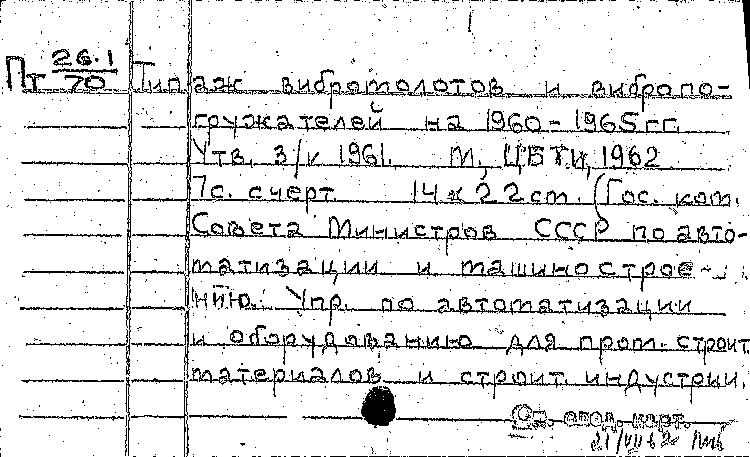 Пт 26.1/70 Типаж вибромолотов и вибропо-
гружателей на 1960-1965 гг.
Утв. 3/V 1961. М., ЦБТИ, 1962
7с. с черт. 14 x 22 см. (Гос. ком.
Совета Министров СССР по авто-
матизации и машинострое-
нию. Упр. по автоматизации
и оборудованию для пром. строит.
материалов и строит. индустрии.